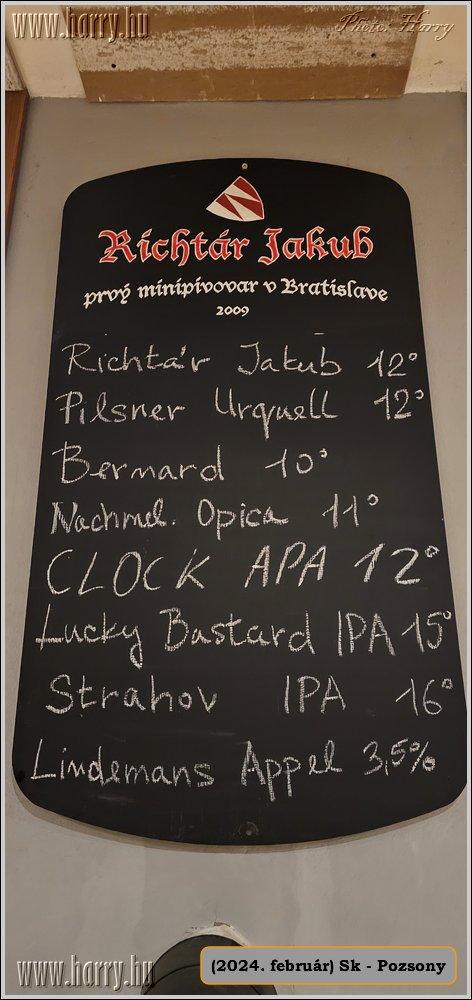 www.harry.hu
Photo: Harry
Richtár Jakub
prvý minipivovar v Bratislave
2009
Richtár Jakub 12°
Pilsner Urquell 12°
Bernard 10°
Nachmel. Opica 11°
CLOCK APA 12°
Lucky Bastard IPA 15°
Strahov IPA 16°
Lindemans Appel 3,5%
www.harry.hu
(2024. február) Sk - Pozsony